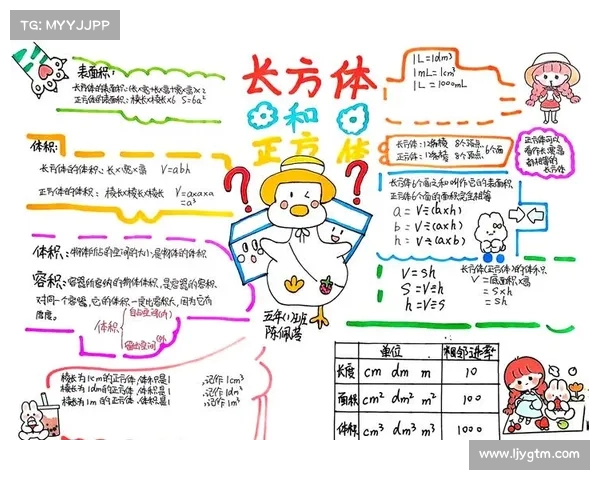 TG: MYYJJPP
长方体
和
正方体
表面积:
长方体的表面积:(长×宽+长×高+宽×高)×2
正方体的表面积:棱长×棱长×6 S=6a²
体积:
长方体的体积:长×宽×高 V=abh
正方体的体积:棱长×棱长×棱长 V=a×a×a
=a³
体积:物体所占的空间的大小,是物体的体积.
容积:容器所容纳的物体体积,是容器的容积.
对同一个容器,它的体积一定比容积大,因为它有
厚度。
体积
棱长为1cm的正方体,体积是1 记作1cm³
棱长为1dm的正方体,体积是1 记作1dm³
棱长为1m的正方体,体积是1 记作1m³
? ?
五年(1)班
1L=1dm³
1mL=1cm³
1L=1000mL
长方体:12条棱 8个顶点
正方体:12条棱 8个顶点
6个面
正方体可以
看作长宽高
都相等的
长方体
长方体6个面之和叫作它的表面积.
正方体6个面的面积完全相等
a=V÷(b×h)
b=V÷(a×h)
h=V÷(a×b)
V=sh
S=V÷h
h=V÷S
长方体(正方体)的体积
V=底面积×高
=S×h
=sh
单位 相邻进率
长度 cm dm m 10
面积 cm² dm² m² 100
体积 cm³ dm³ m³ 1000
www.ljygtm.com